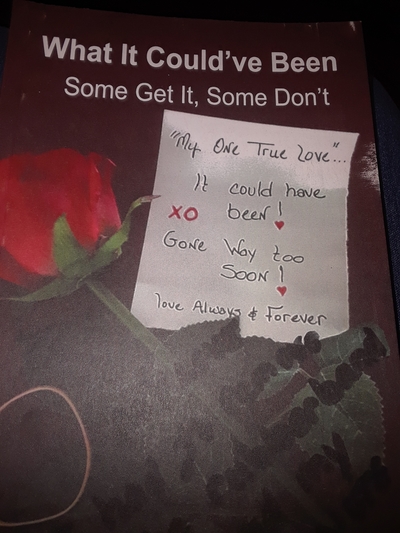 What It Could've Been
Some Get It, Some Don't
"My One True Love"...
It could have
XO been!
Gone Way too
Soon!
love Always & Forever